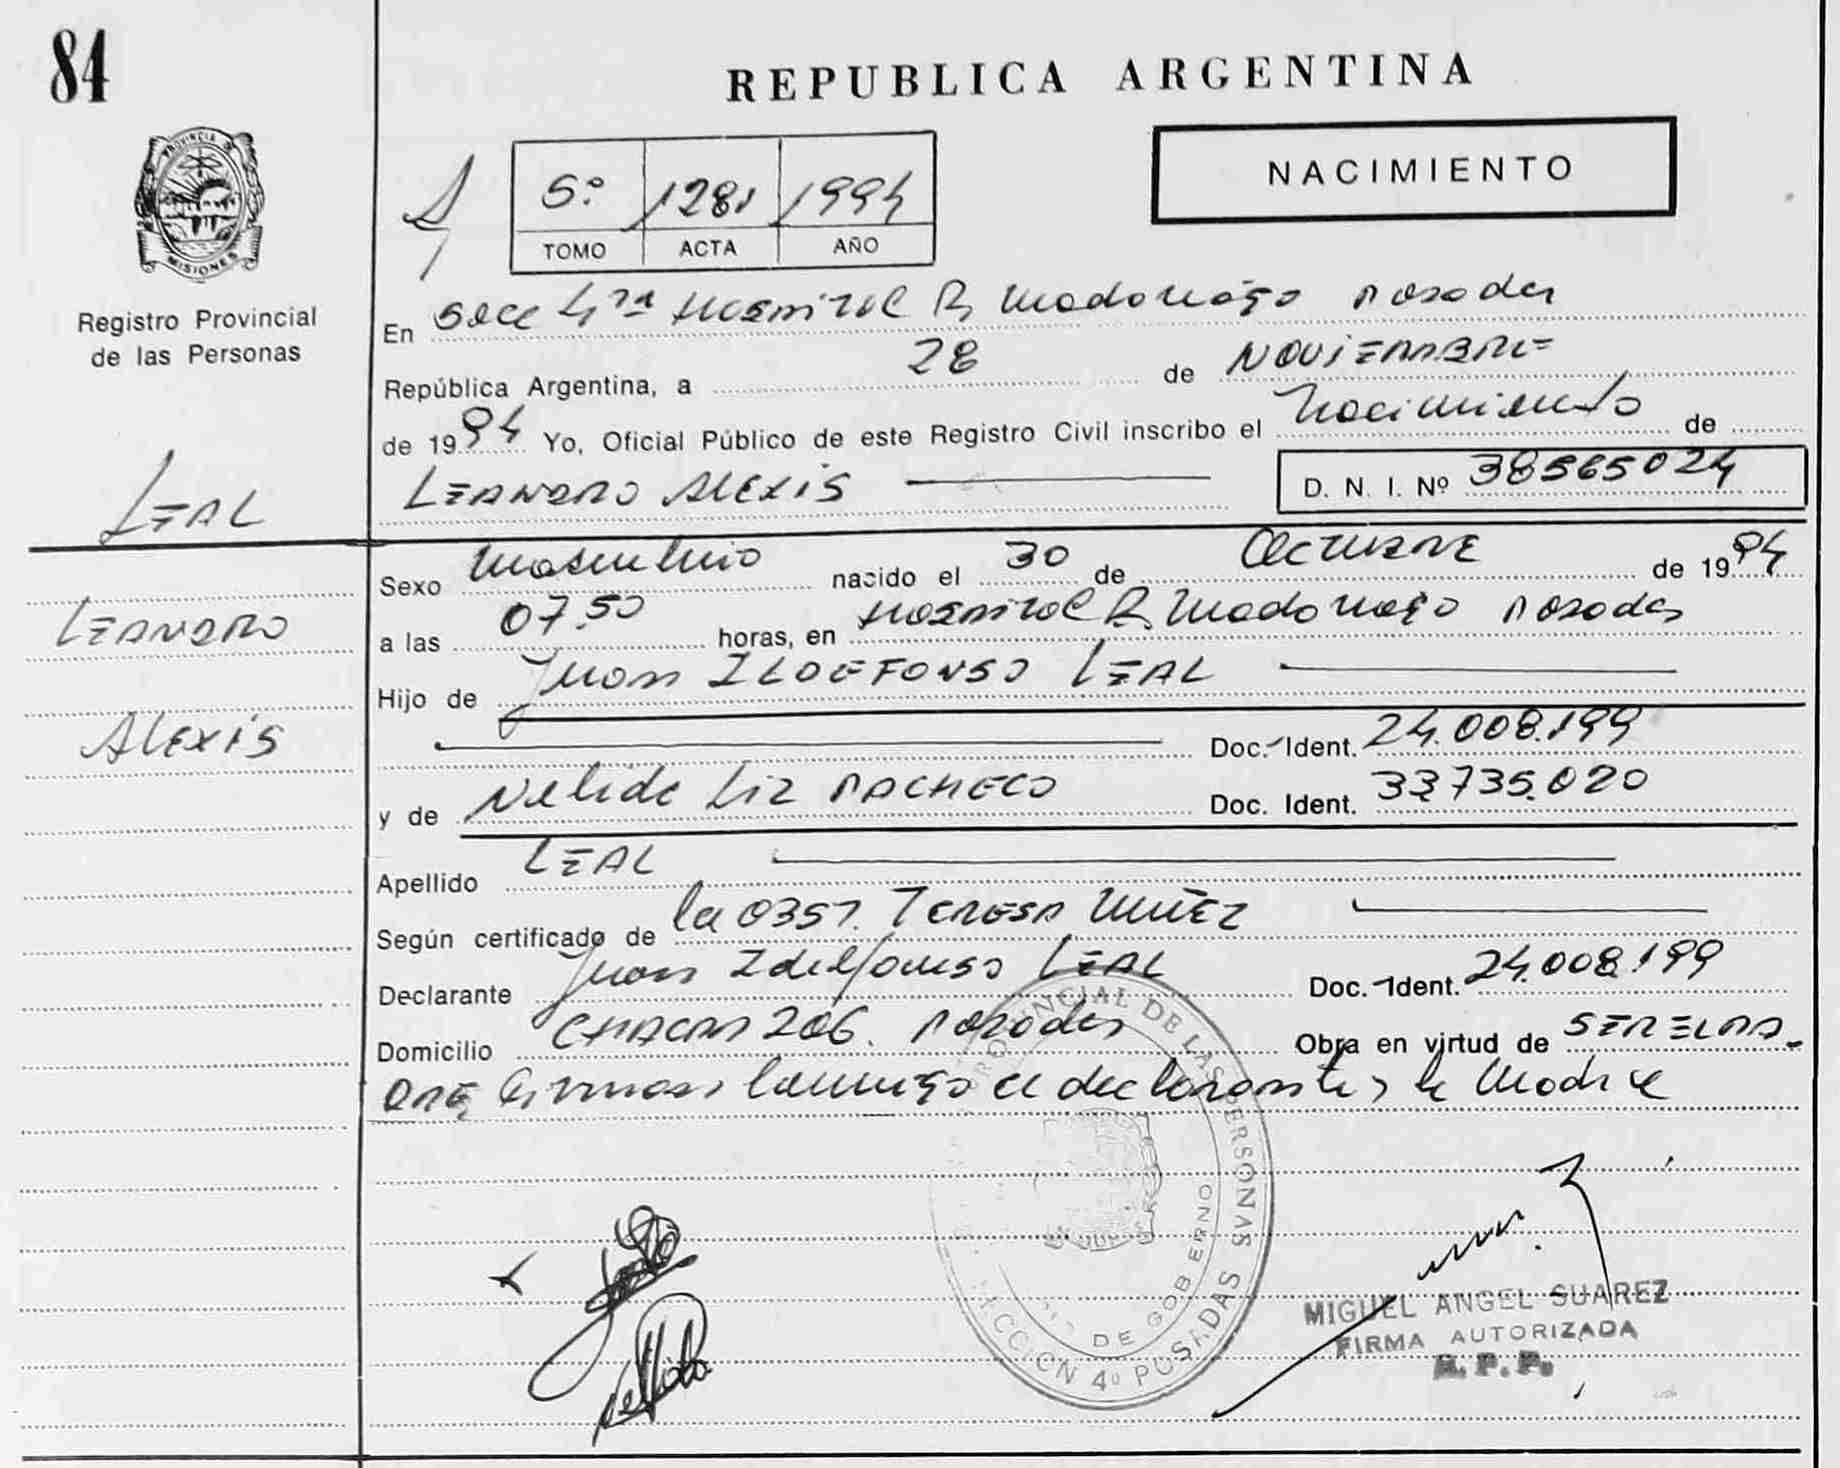 84
REPUBLICA ARGENTINA
NACIMIENTO
5º 1281 1994
TOMO ACTA AÑO
PROVINCIA DE
MISIONES
Registro Provincial
de las Personas
En Secc 4ta Hospital R. Madariaga Posadas
República Argentina, a 28 de NOVIEMBRE
de 1994 Yo, Oficial Público de este Registro Civil inscribo el Nacimiento de
LEANDRO ALEXIS D. N. I. Nº 38565024
LEAL
LEANDRO
ALEXIS
Sexo Masculino nacido el 30 de OCTUBRE de 1994
a las 07.50 horas, en Hospital R. Madariaga Posadas
Hijo de Juan ILDEFONSO LEAL
Doc. Ident. 24.008.199
y de Nelida Liz PACHECO Doc. Ident. 33.735.020
Apellido LEAL
Según certificado de la 0357. TERESA MUÑEZ
Declarante Juan Idelfonso LEAL Doc. Ident. 24.008.199
Domicilio CHACAS 206. Posadas Obra en virtud de
firman conmigo el declarante y la Madre
PROVINCIAL DE LAS PERSONAS
DE GOBIERNO
SECCION 4º POSADAS
Nelida
MIGUEL ANGEL SUAREZ
FIRMA AUTORIZADA
R. P. P.